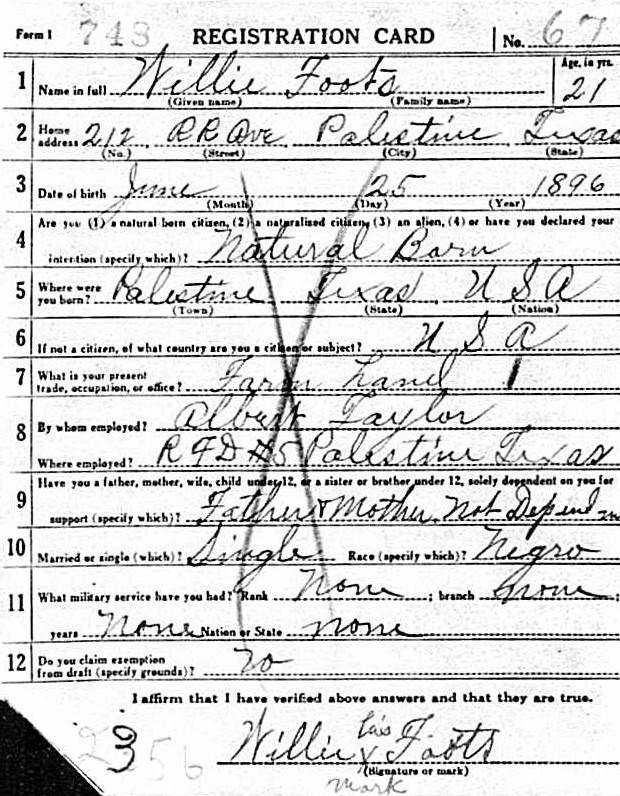 Form 1 743 REGISTRATION CARD No. 67
1 Name in full Willie Foots Age, in yrs. 21
(Given name) (Family name)
2 Home address 212 RR Ave Palestine Texas
(No.) (Street) (City) (State)
3 Date of birth June 25 1896
(Month) (Day) (Year)
4 Are you (1) a natural born citizen, (2) a naturalized citizen, (3) an alien, (4) or have you declared your
intention (specify which)? Natural Born
5 Where were you born? Palestine Texas U S A
(Town) (State) (Nation)
6 If not a citizen, of what country are you a citizen or subject? U S A
7 What is your present trade, occupation, or office? Farm Hand 1
8 By whom employed? Albert Taylor
Where employed? RFD #5 Palestine Texas
9 Have you a father, mother, wife, child under 12, or a sister or brother under 12, solely dependent on you for
support (specify which)? Father & Mother, Not Depend
10 Married or single (which)? Single Race (specify which)? Negro
11 What military service have you had? Rank None ; branch none ;
years None Nation or State none
12 Do you claim exemption from draft (specify grounds)? No
I affirm that I have verified above answers and that they are true.
his
3 Willie X Foots
(Signature or mark)
mark